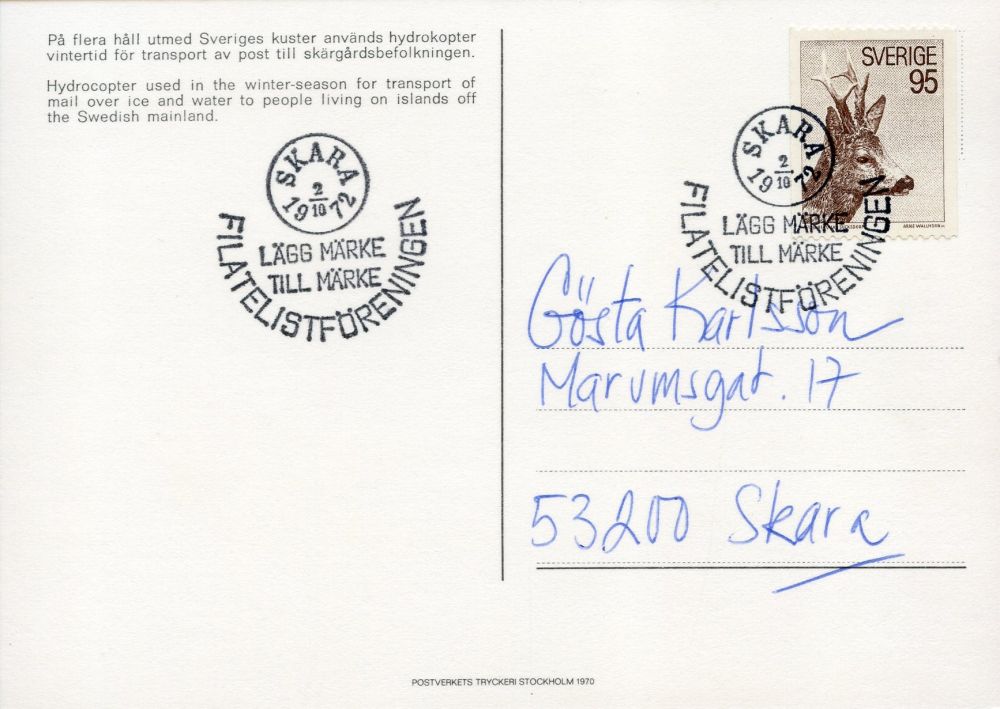 På flera håll utmed Sveriges kuster används hydrokopter
vintertid för transport av post till skärgårdsbefolkningen.
Hydrocopter used in the winter-season for transport of
mail over ice and water to people living on islands off
the Swedish mainland.
SKARA
2
10
1972
LÄGG MÄRKE
TILL MÄRKE
FILATELISTFÖRENINGEN
SVERIGE
95
ARNE WALLHORN
SKARA
2
10
1972
LÄGG MÄRKE
TILL MÄRKE
FILATELISTFÖRENINGEN
Gösta Karlsson
Marumsgat. 17
53200 Skara
POSTVERKETS TRYCKERI STOCKHOLM 1970